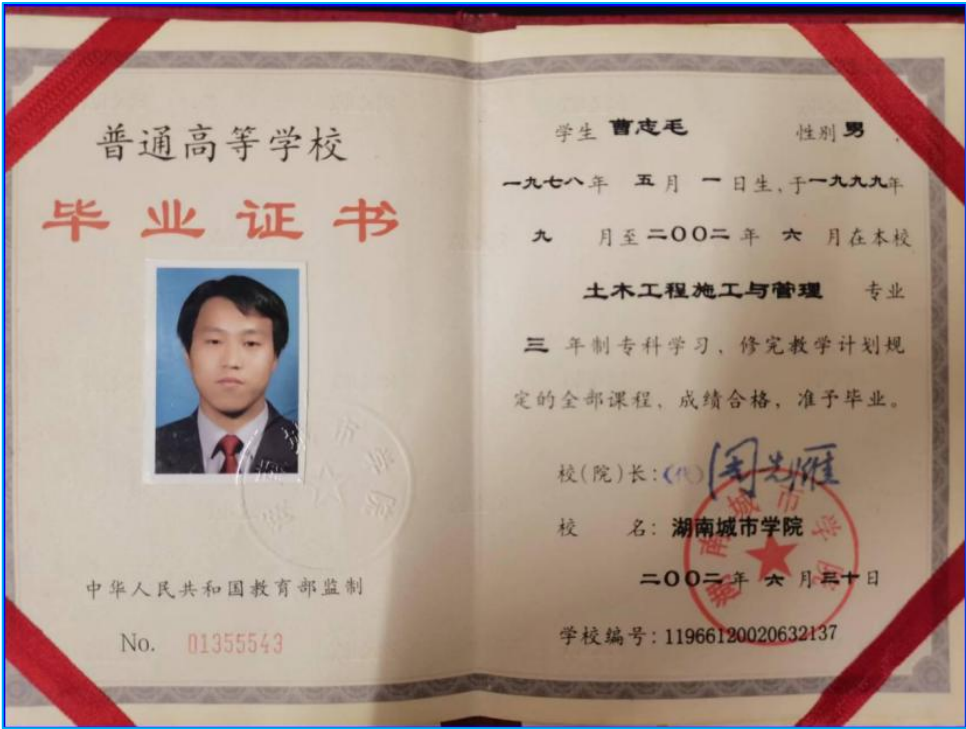 普通高等学校
毕业证书
中华人民共和国教育部监制
No. 01355543
学生 曹志毛 性别 男
一九七八年 五月 一日生，于一九九九年
九 月至二OO二年 六 月在本校
土木工程施工与管理 专业
三 年制专科学习、修完教学计划规
定的全部课程，成绩合格，准予毕业。
校(院)长：(代) 周先雁
校 名：湖南城市学院
二OO二年 六 月三十日
学校编号：11966120020632137
湖南城市学院